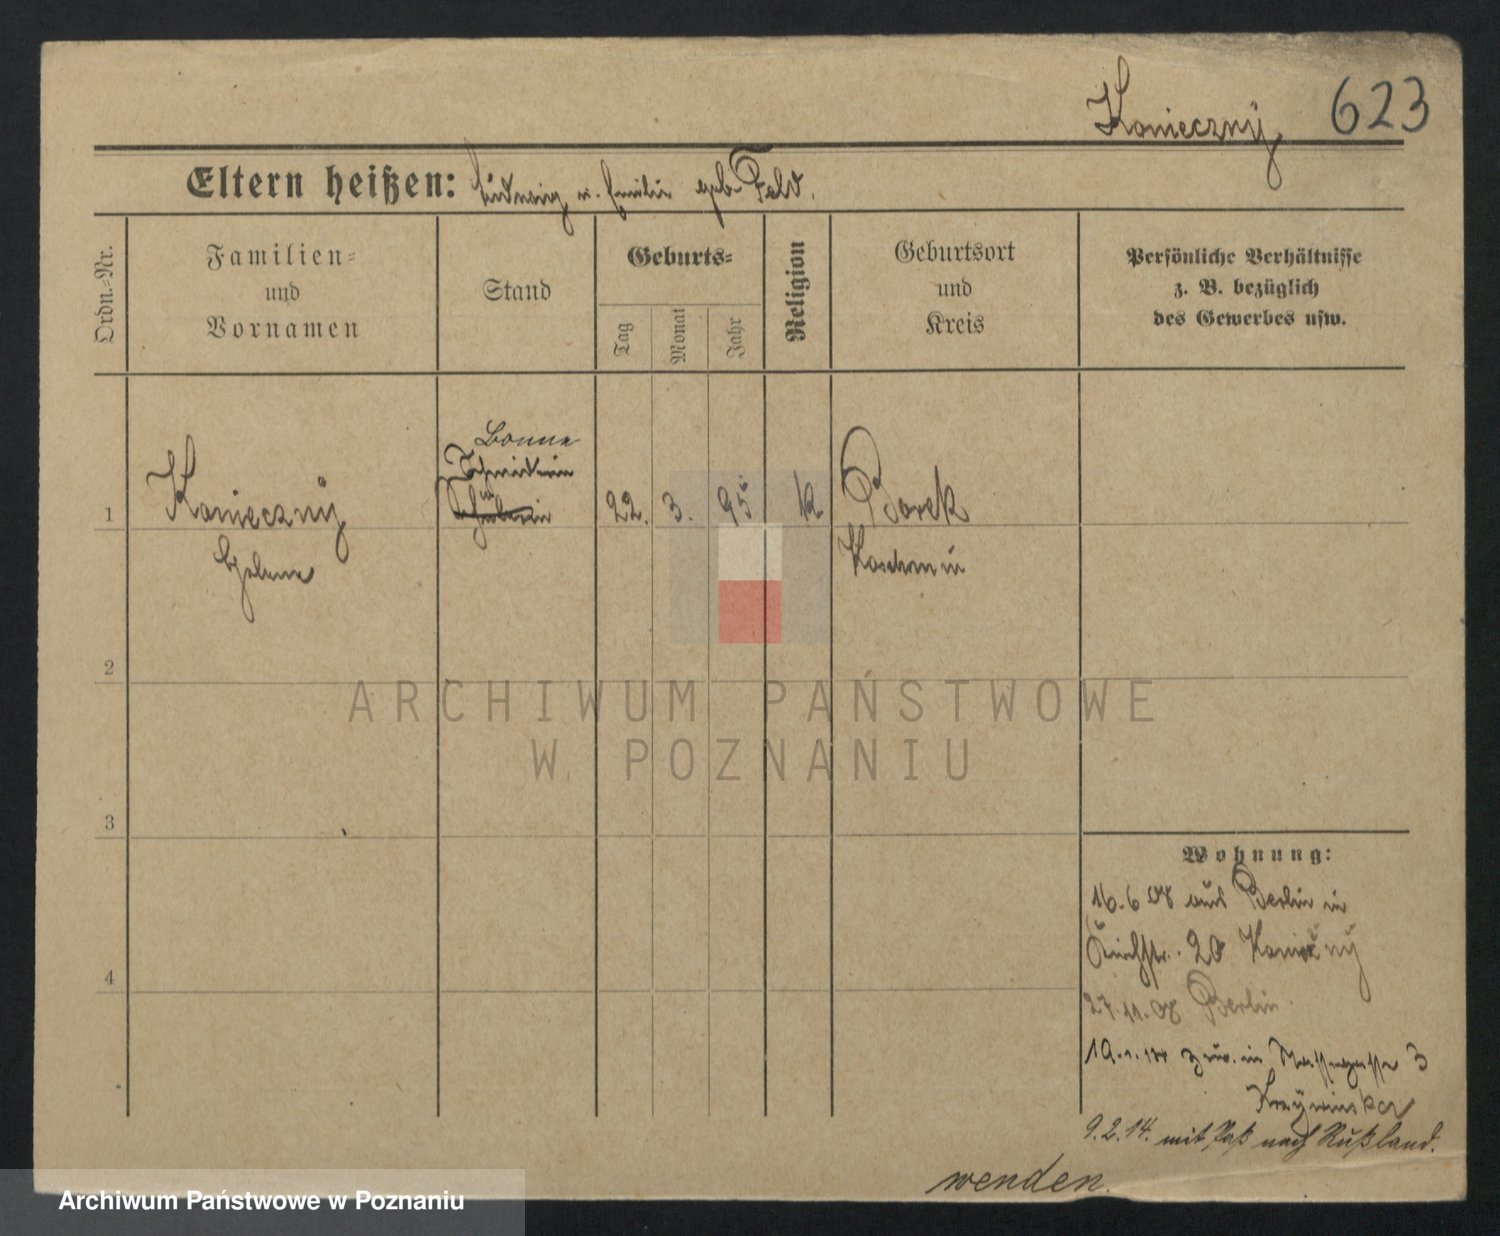 Konieczny 623
Eltern heißen: Ludwig u. Emilie geb. Feld.
Ordn.-Nr.
Familien-
und
Vornamen
Stand
Geburts-
Tag
Monat
Jahr
Religion
Geburtsort
und
Kreis
Persönliche Verhältnisse
z. B. bezüglich
des Gewerbes usw.
Bonne
1 Konieczny 22. 3. 95 k. Borek
Helene Koschmin
2
3
4
Wohnung:
16.6 08 aus Berlin in
Kirchstr. 20
27.11.08 Berlin.
zur. in 3
9.2.14. mit Paß nach Rußland.
wenden.
ARCHIWUM PAŃSTWOWE
W POZNANIU
Archiwum Państwowe w Poznaniu